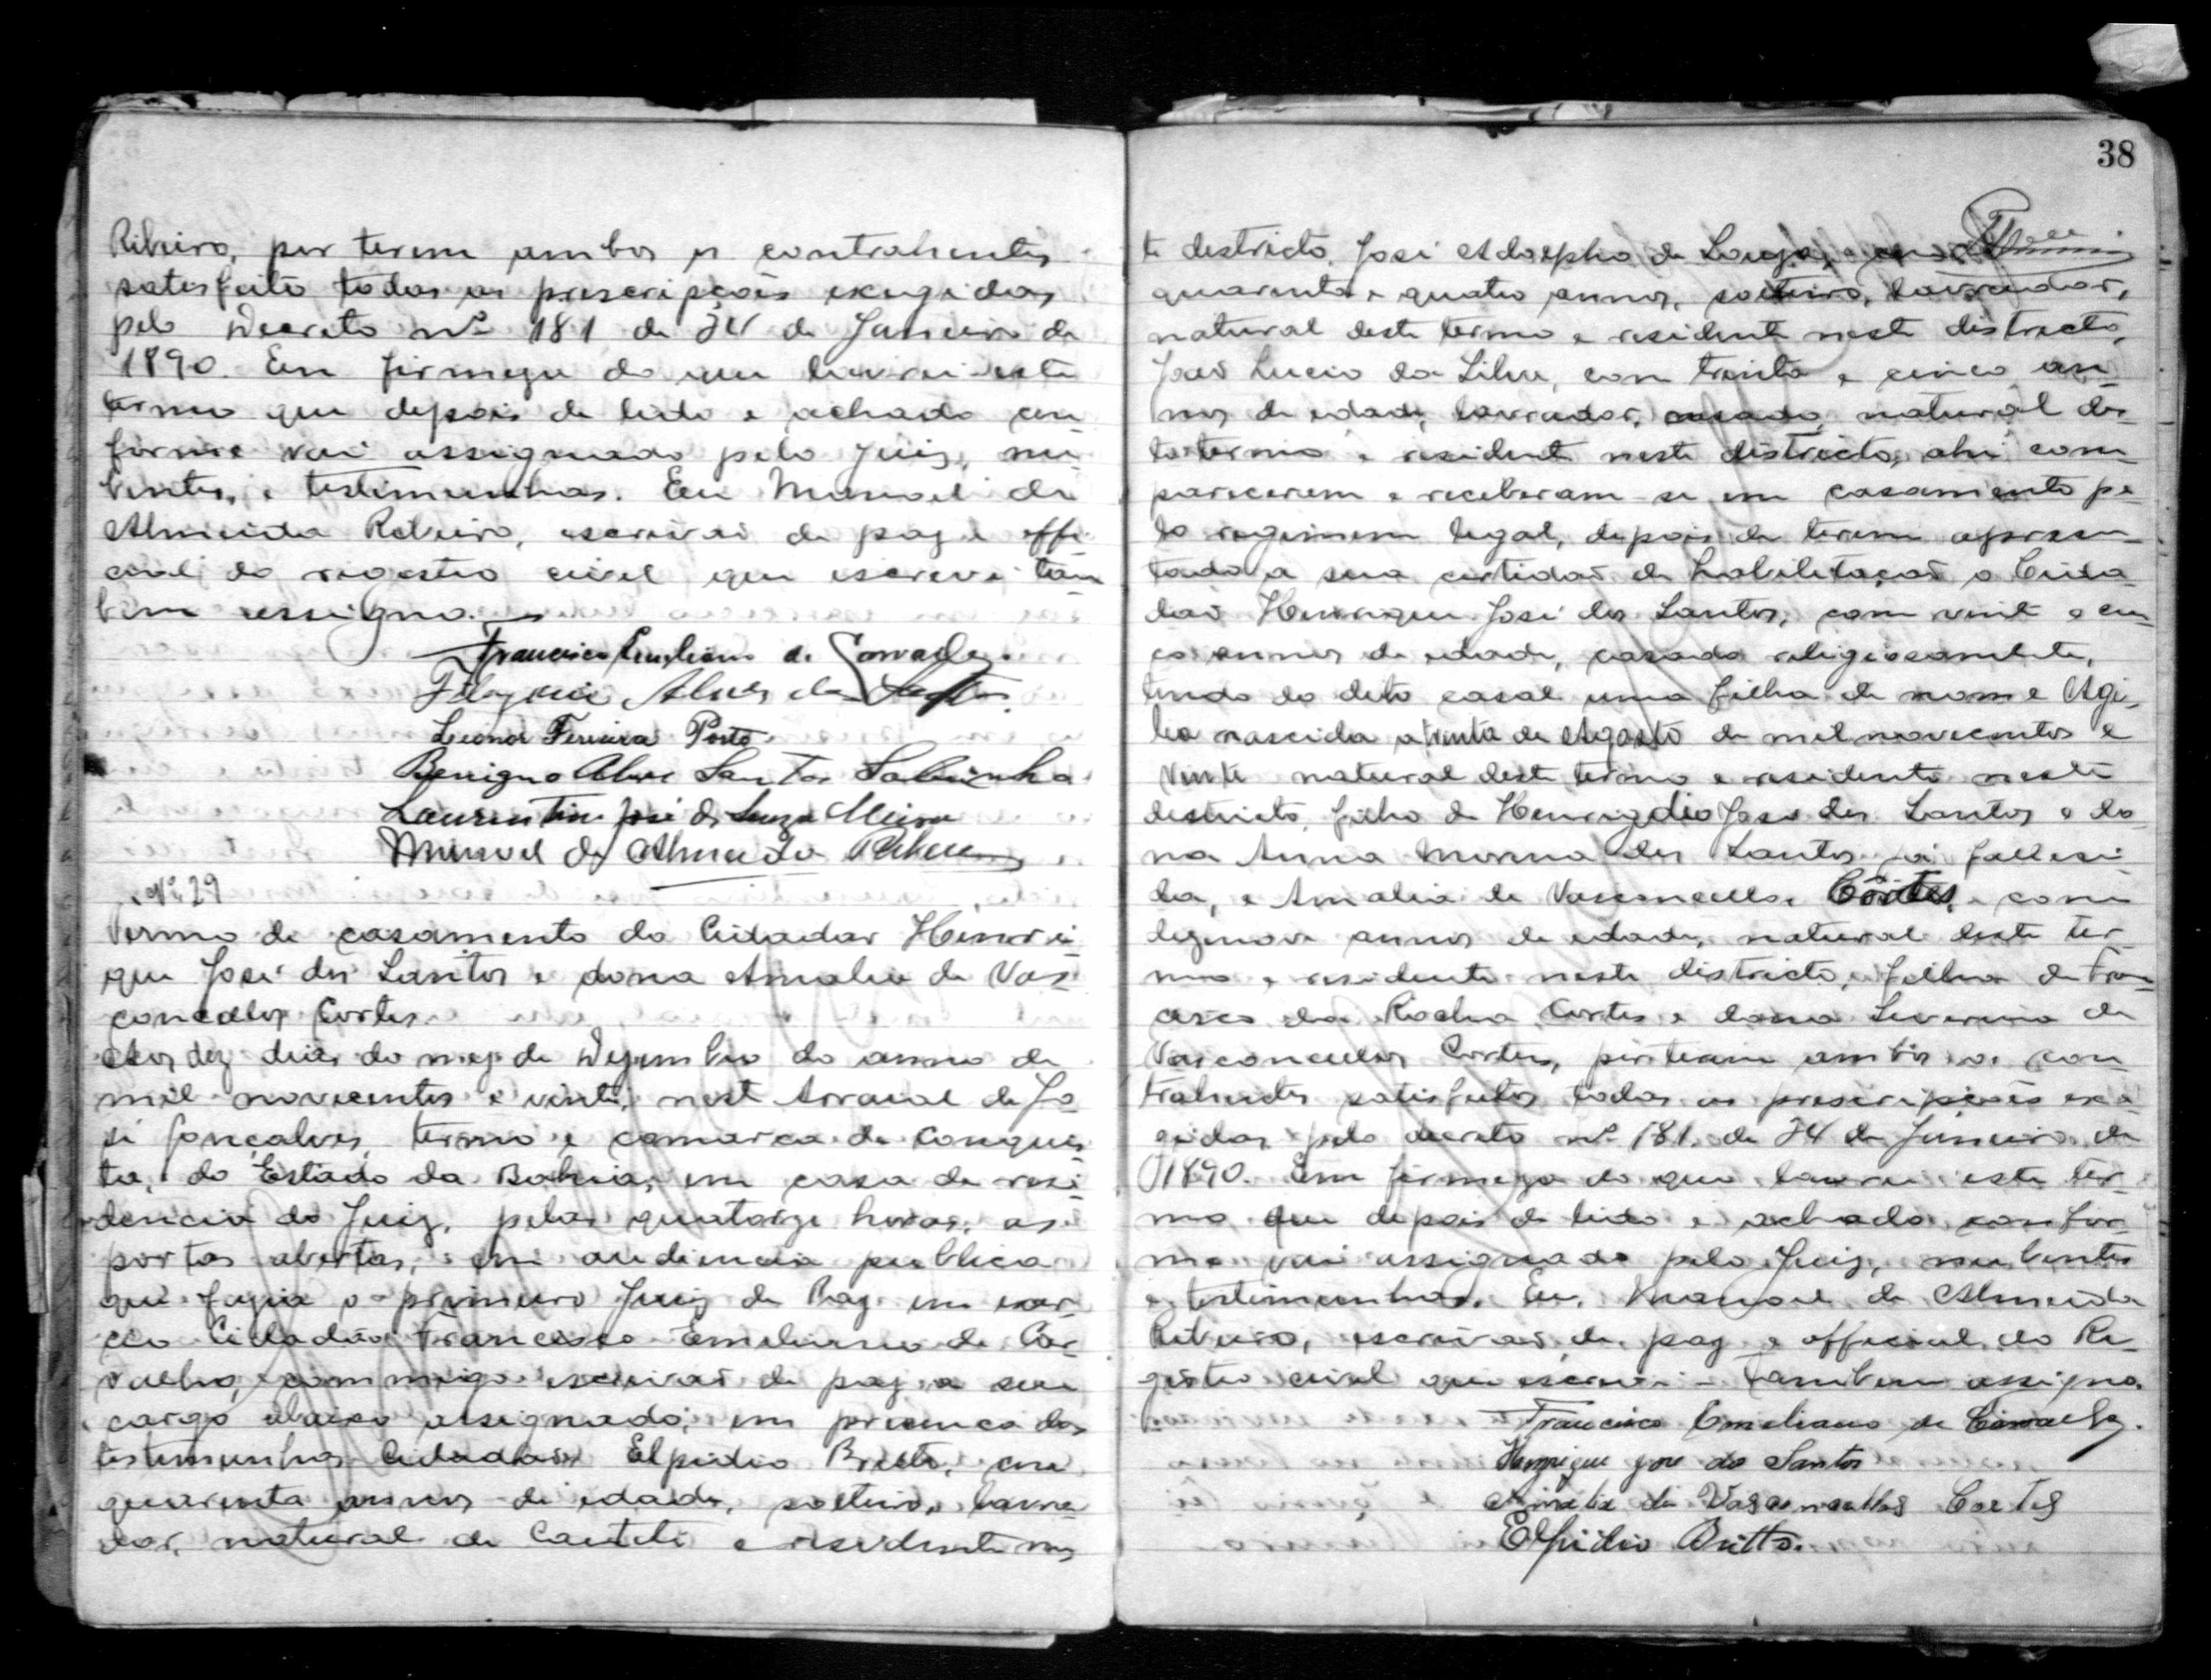 Ribeiro, por terem ambos os contrahentes
satisfeito todas as prescripções exegidas
pelo Decreto nº 181 de 24 de Janeiro de
1890. Em firmeza do que lavrei este
termo que depois de lido e achado con
forme vai assignado pelo Juiz, nu
bentes, e testemunhas. Eu Manoel de
Almeida Ribeiro, escrivaõ de paz e offi
cial do registro civel que escrevi tam
bem assigno.
Francisco Emiliano de Carvalho.
Alves dos Santos.
Leonor Ferreira Porto
Benigno Alves Santos
Laurentino José de Souza Meira
Manoel de Almeida Ribeiro
Nº 29
Termo de casamento do Cidadão Henri
que José dos Santos e dona Amalia de Vas
concellos Cortes.
Aos dez dias do mez de Dezembro do anno de
mil novecentos e vinte, nest Arraial de Jo
sé Gonçalves, termo e comarca de Conquis
ta, do Estado da Bahia, em casa de resi
dencia do Juiz, pelas quatorze horas, as
portas abertas, em audiencia publica
que fazia o primeiro Juiz de Paz em exer
cio Cidadão Francisco Emeliano de Car
valho, commigo escrivaõ de paz a seu
cargo abaixo assignado, em presença das
testemunhas Cidadãos Elpidio Britto, com
quarenta annos de edade, solteiro, lavra
dor, natural de Caeteté e residente nes
38
te destricto, José Adolpho de Souza, com
quarenta e quatro annos, solteiro, lavrador,
natural deste termo e residente neste districto,
João Lucio da Silva, com trinta e cinco an
nos de edade, lavrador, casado, natural des
te termo e residente neste districto, ahi com
pareceram e receberam-se em casamento pe
lo regimem legal, depois de terem apresen
tado a sua certidaõ de habiletaçaõ o Cida
daõ Henrique José dos Santos, com vinte e cin
co annos de edade, casado religiosamente,
tendo do dito casal uma filha de nome Agi
lea nascida a trinta de Agosto de mil novecentos e
vinte natural deste termo e residente neste
destricto, filho de Henrigdio José dos Santos e do
na Anna Maria dos Santos já falleci
da, e Amalia de Vasconcellos Côrtes, com
dezenove annos de edade, natural deste ter
mo e residente neste districto, filha de Fran
cisco da Rocha Cortes e dona Severina de
Vasconcellos Cortes, por terem ambos os con
trahentes satisfeitos todas as prescripções exe
gidas pelo decreto nº 181, de 24 de Janeiro de
1890. Em firmeza do que lavrei este ter
mo que depois de lido e achado confor
me vai assignado pelo Juiz, nubentes
e testimunhas. Eu, Manoel de Almeida
Ribeiro, escrivaõ de paz e official do Re
gistro civel que escrevi - tambem assigno.
Francisco Emeliano de Carvalho.
Henrique jose do Santos
Amalia de Vasconcellos Cortes
Elpidio Britto.